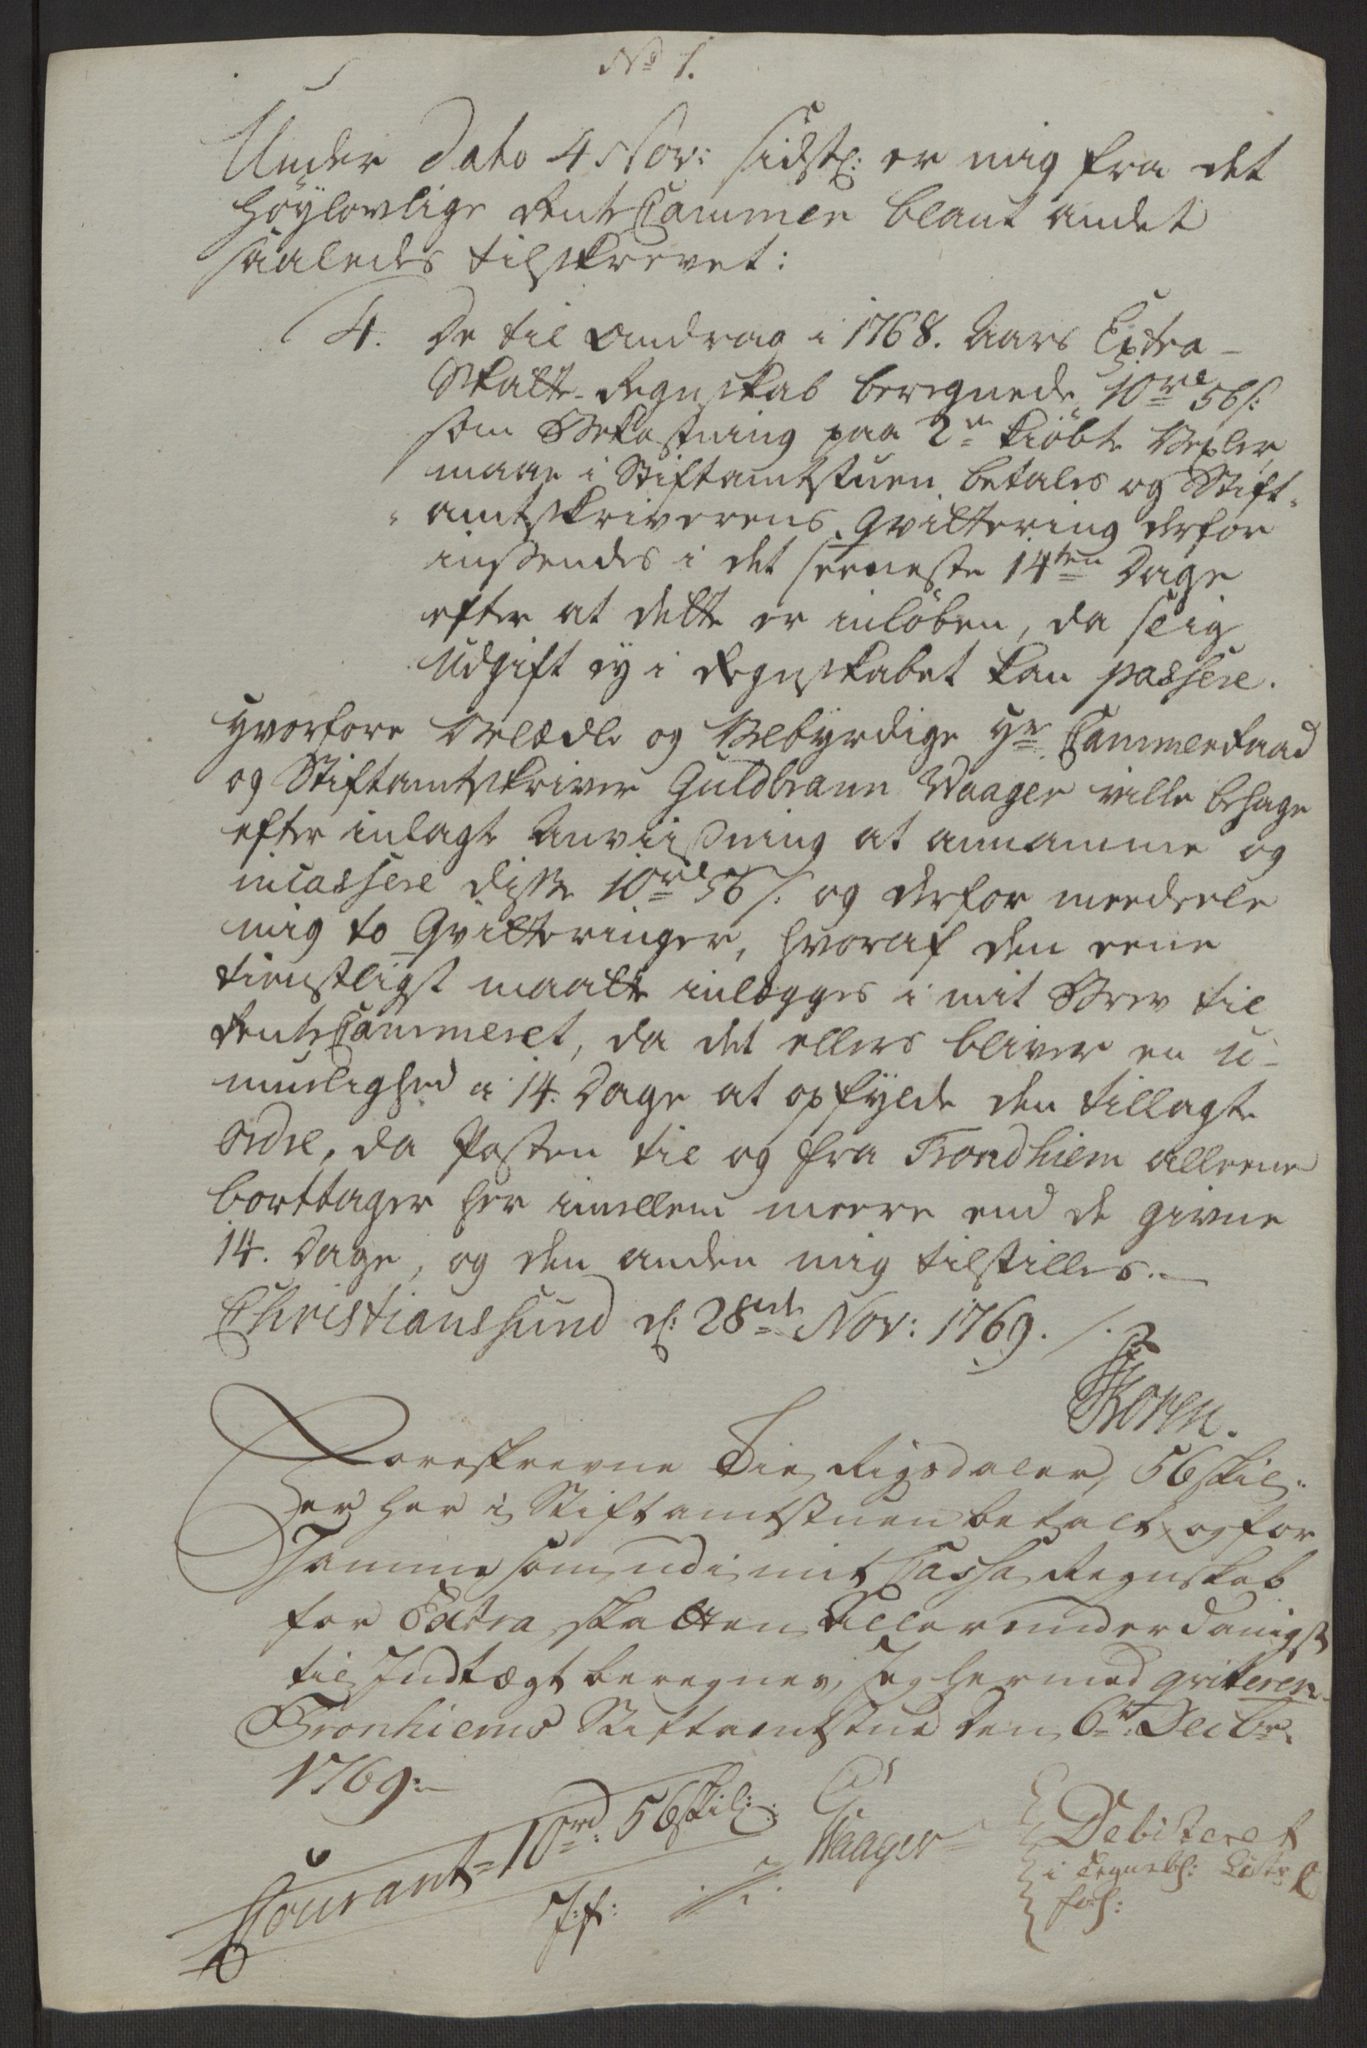 No 1.
Under Dato 4 Nov: sidstl: er mig fra det
Höylovlige RenteCammer blant andet
saaledes tilskrevet:
4. De til Andrag i 1768. Aars Extra-
Skatte-Regnskab beregnede 10 rd 56 s:
som Bekostning paa 2de kiöbte Vexler
maae i Stiftamtstuen betales og Stift-
amtskriverens Qvittering derfor
indsendes i det seeneste 14ten Dage
efter at dette er inlöben, da slig
Udgift ey i Regnskabet kan passere.
Hvorfore Velædle og Velbyrdige Hr CammerRaad
og Stiftamtskriver Guldbrann Waager ville behage
efter inlagte Anviisning at annamme og
incassere disse 10 rd 56 s: og derfor meedeele
mig to Qvitteringer, hvoraf den eene
tienstligst maatte inlægges i mit Brev til
RenteCammeret, da det ellers bliver en u-
muelighed i 14. Dage at opfylde den tillagte
Ordre, da Posten til og fra Trondhiem alleene
borttager her imellem meere end de givne
14. Dage, og den anden mig tilstilles.
Christianssund d: 28de Nov: 1769. /.
Koren.
Foreskrevne Tie Rigsdaler, 56 skil:
er her i Stiftamtstuen betalt og for
Samme som udi mit Cassa Regnskab
for Extra skatten Allerunderdanigst
til Indtægt beregnes, Jeg hermed qviterer
Tronhiems Stiftamtstue den 6te Decbr.
1769.
Courant = 10 rd: 56 skil:
Waager
Debiteret
i Regnsk: